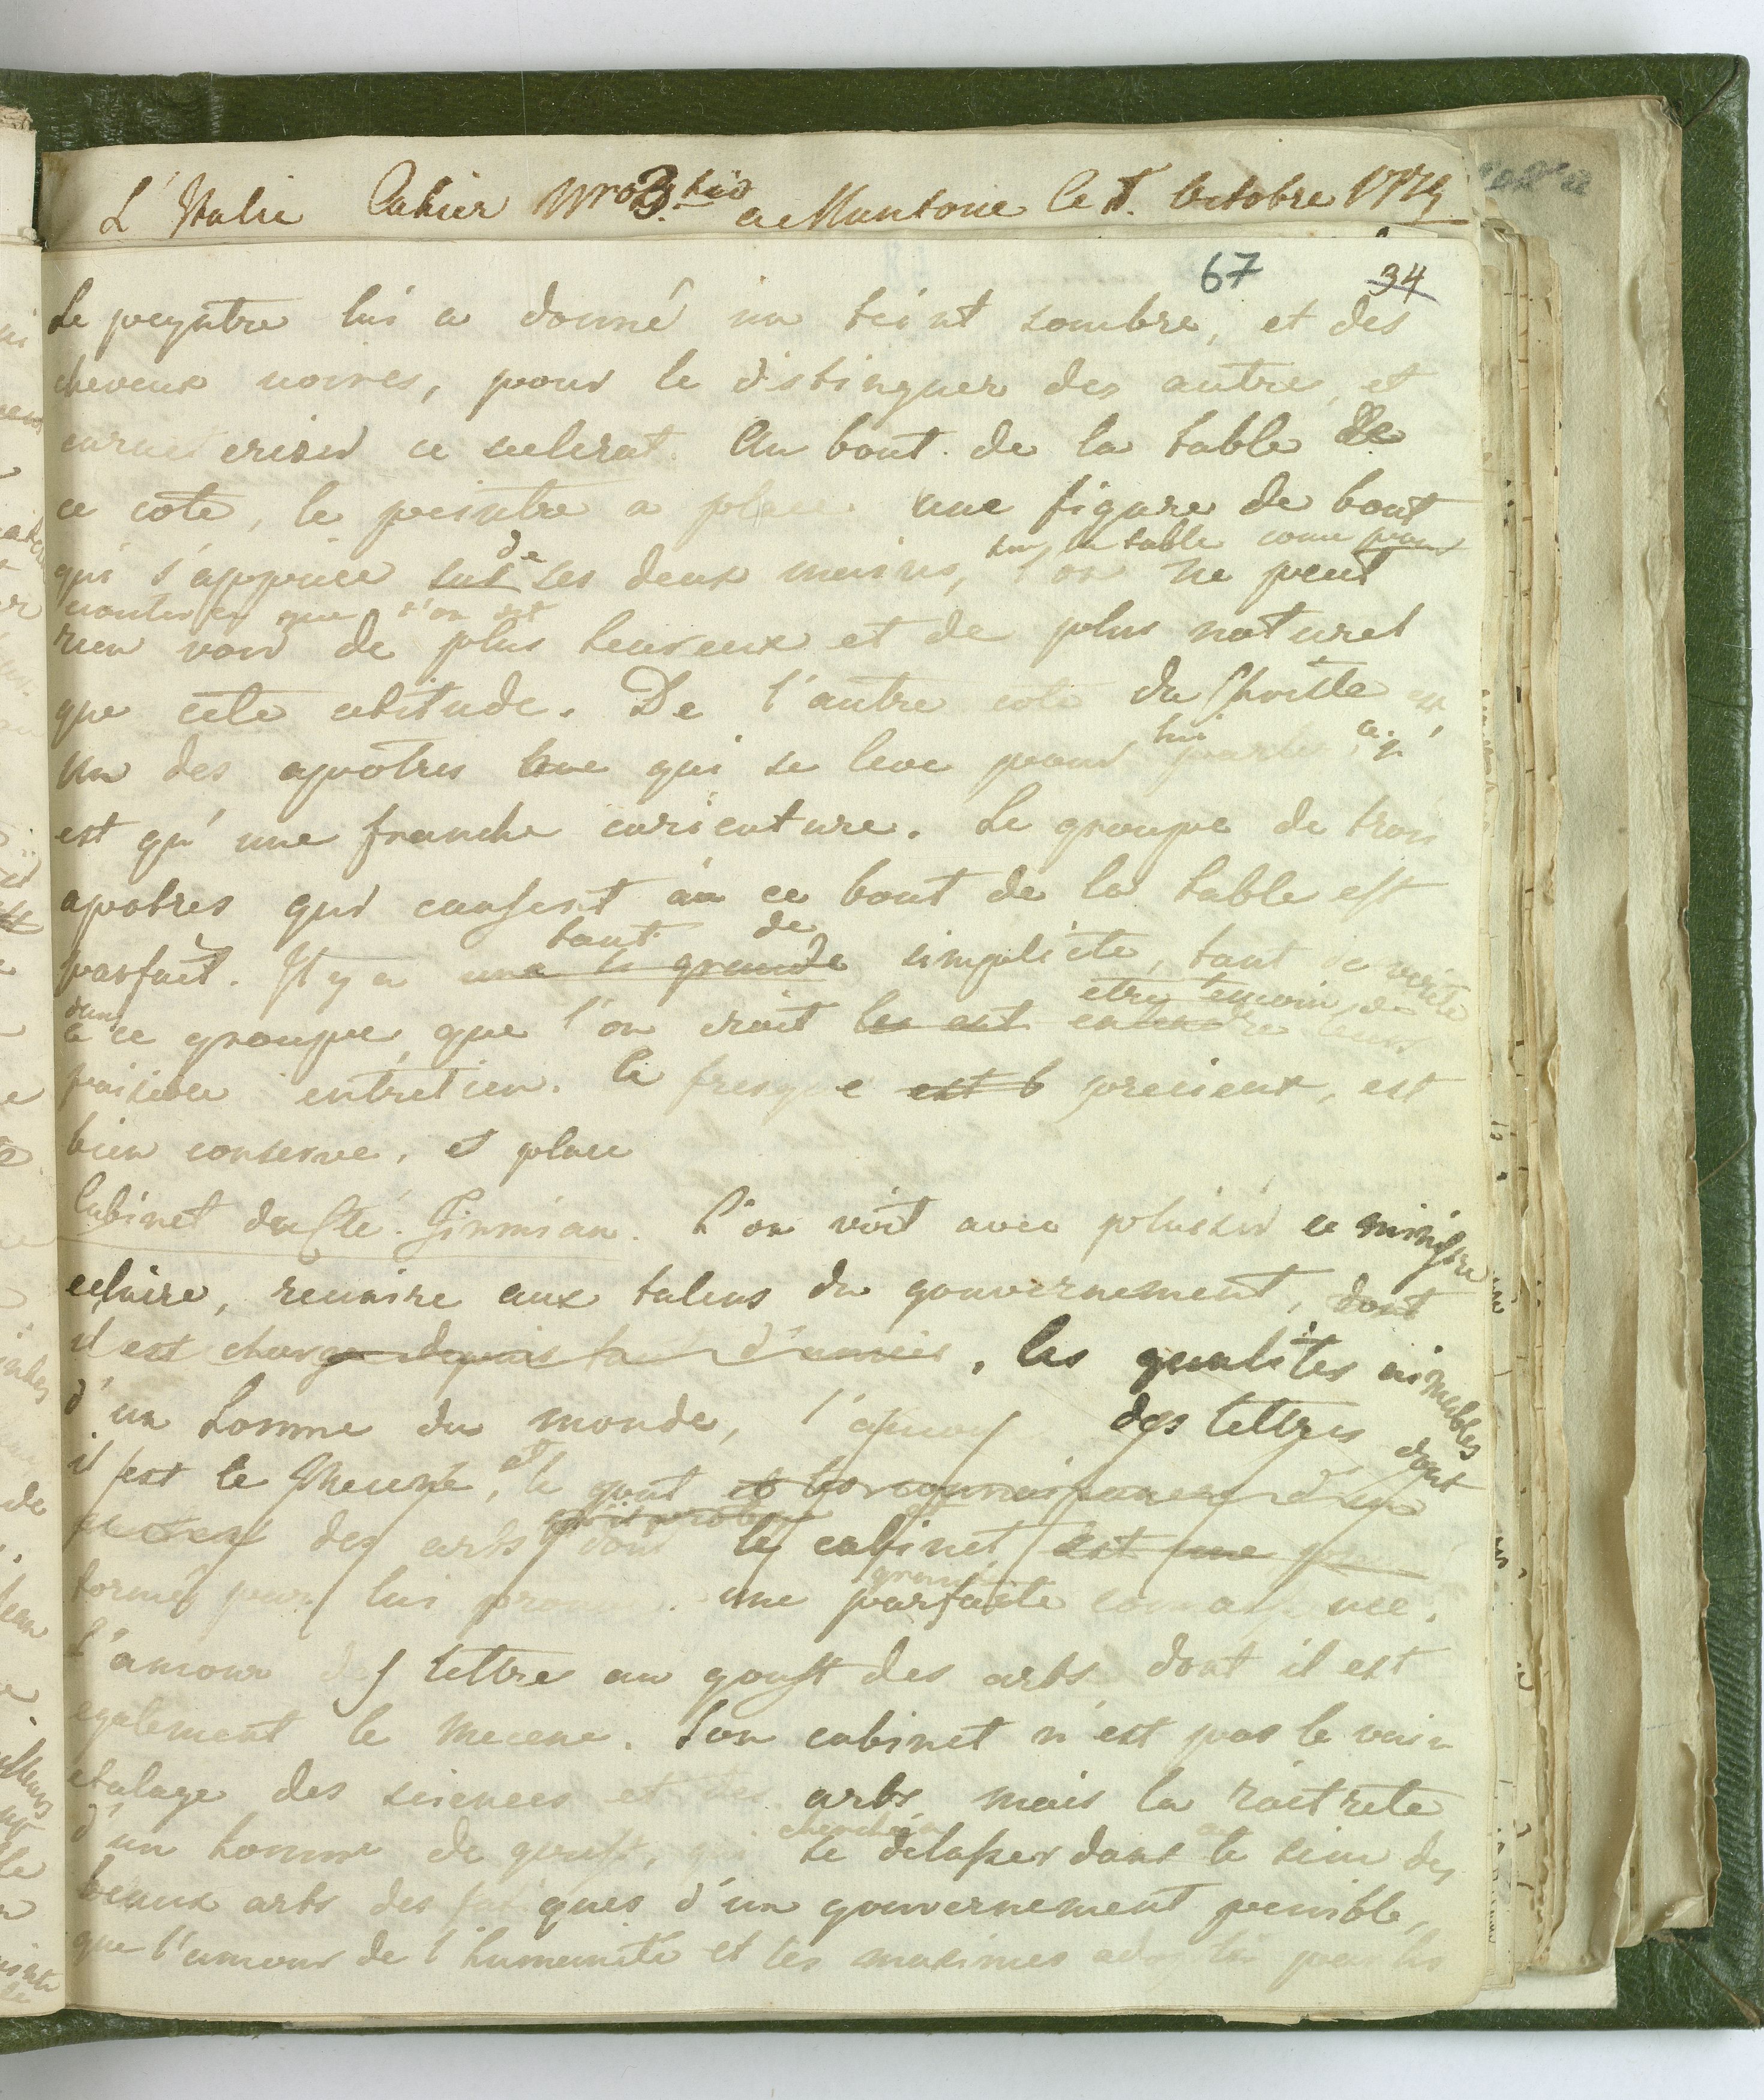 L'Italie Cahier Nro 3. bis a Mantoue le 1. Octobre 1779
67 34
Le peyntre lui a donné un teint sombre, et des
cheveux noires, pour le distinguer des autres, et
ce celerat. Au bout de la table de
ce coté, le peintre a placé une figure de bout
sur la table come pour
qui s'appuiee sur de ses deux mains, l'on ne peut
que l'on dit
rien voir de plus heureux et de plus naturel
que cete atitude. De l'autre coté du Christe est
lui
un des apotres qui se leve pour parler,
est qu'une franche caricature. Le groupe de trois
apotres qui causent à ce bout de la table est
tant de
parfait. Il y a une si grande simplicite, tant de verité
etre temoin de
dans ce groupe, que l'on croit entendre leurs
paisible entretien. Ce fresque est b precieux, est
bien conserve, et place
Cabinet du Cte. Firmian. L'on voit avec plaisir ce ministre
eclaire, reunire aux talens du gouvernement, dont
il est charge depuis tant d'annees, les qualites aimables
d'un homme du monde, l'amour des lettres dont
il est le Mecene, et le gout et les connaissances d'un
des arts dont le cabinet est une
grande
formé par lui prouve une parfaite
L'amour des lettre au goust des arts dont il est
egalement le mecene. Son cabinet n'est pas le vain
etalage des sciences et des arts mais la raitrete
cherche a
d'un homme de goust, qui se delasser dans le sein des
beaux arts des fatigues d'un gouvernement penible,
que l'amour de l'humanité et les maximes adoptés par les